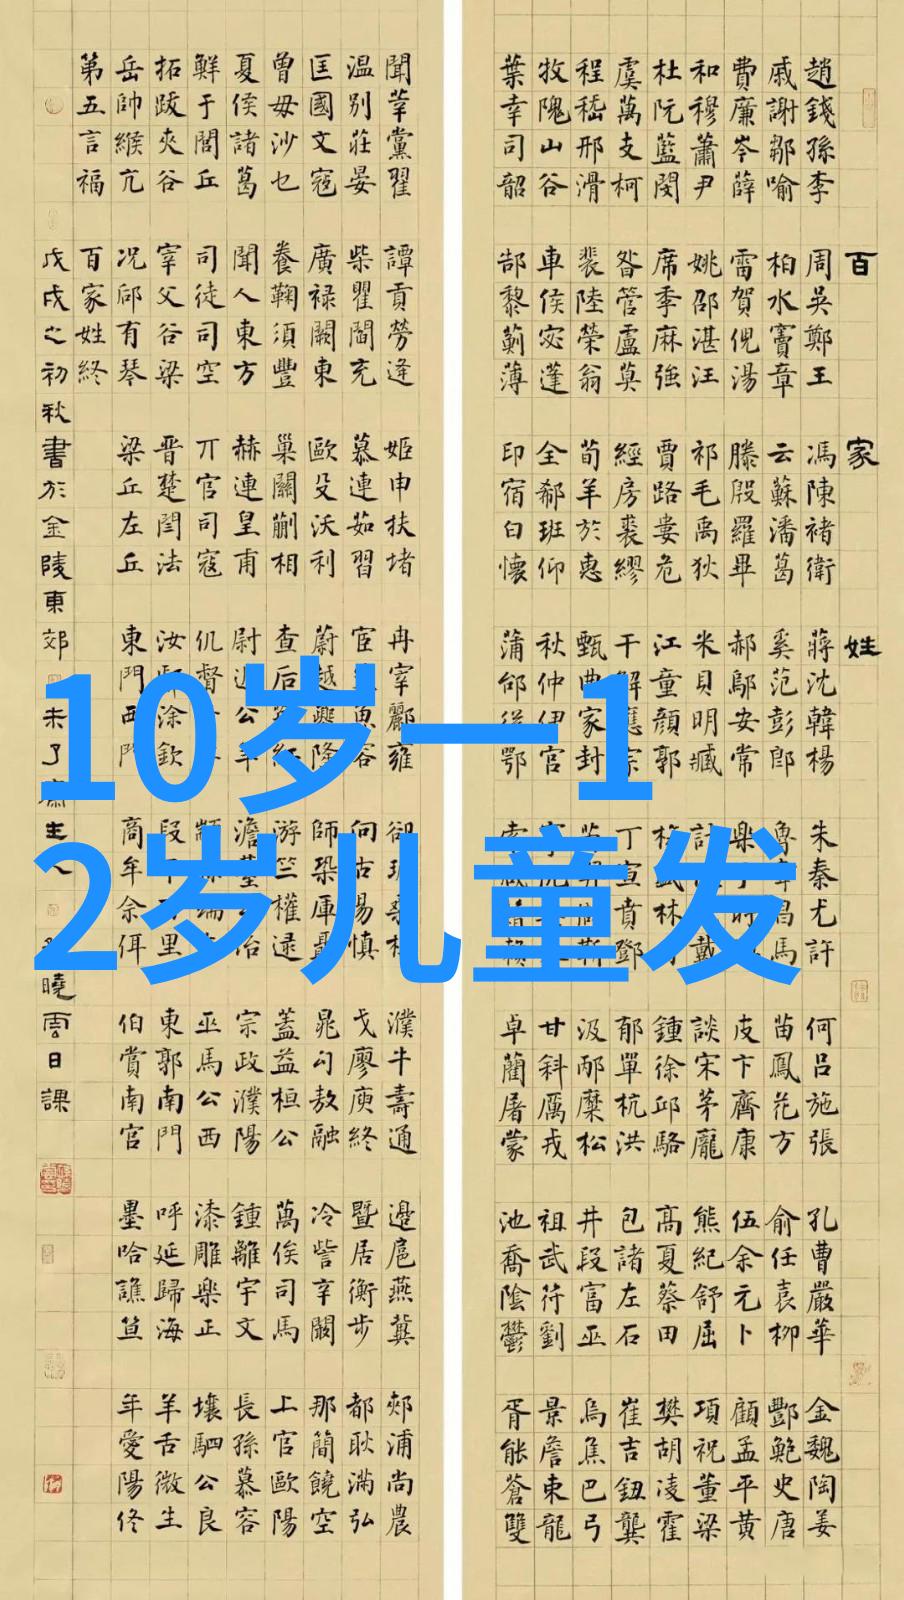 百家姓
趙錢孫李 周吳鄭王 馮陳褚衛 蔣沈韓楊 朱秦尤許 何呂施張 孔曹嚴華 金魏陶姜
戚謝鄒喻 柏水竇章 云蘇潘葛 奚范彭郎 魯昌馬 苗鳳花方 俞任袁柳 酆鮑史唐
費廉岑薛 雷賀倪湯 滕殷羅畢 郝鄔安常 樂 皮卞齊康 伍余元卜 顧孟平黃
和穆蕭尹 姚邵湛汪 祁毛禹狄 米貝明臧 計戴 談宋茅龐 熊紀舒屈 項祝董梁
杜阮藍閔 席季麻強 賈路婁危 江童顏郭 林 鍾徐邱駱 高夏蔡田 樊胡凌霍
虞萬支柯 昝管盧莫 經房裘繆 干解應宗 丁宣賁鄧 郁單杭洪 包諸左石 崔吉鈕龔
程嵇邢滑 裴陸榮翁 荀羊於惠 甄曲家封 靳 汲邴糜松 井段富巫 烏焦巴弓
牧隗山谷 車侯宓蓬 全郗班仰 秋仲伊宮 甘斜厲戎 祖武符劉 景詹束龍
葉幸司韶 郜黎薊薄 印宿白懷 蒲邰從鄂 索 卓藺屠蒙 池喬陰鬱 胥能蒼雙
聞莘黨翟 譚貢勞逄 姬申扶堵 冉宰酈雍 卻璩桑桂 濮牛壽通 邊扈燕冀 郟浦尚農
温別莊晏 柴瞿閻充 慕連茹習 宦魚容 向古易慎 戈廖庾終 暨居衡步 都耿滿弘
匡國文寇 廣祿闕東 歐殳沃利 蔚越夔隆 師鞏厙聶 晁勾敖融 冷訾辛闞 那簡饒空
曾毋沙乜 養鞠須豐 巢關蒯相 查后紅 游竺權逯 蓋益桓公 萬俟司馬 上官歐陽
夏侯諸葛 聞人東方 赫連皇甫 尉遲公羊 澹臺冶 宗政濮陽 鍾離宇文 長孫慕容
鮮于閭丘 司徒司空 丌官司寇 仉督 顓端 巫馬公西 漆雕樂正 壤駟公良
拓跋夾谷 宰父谷梁 晉楚閆法 汝鄢涂欽 段里 東郭南門 呼延歸海 羊舌微生
岳帥緱亢 況郈有琴 梁丘左丘 東門西門 商牟佘佴 伯賞南宮 墨哈譙笪 年愛陽佟
第五言福 百家姓終
戊戌之初秋書於金陵東郊未了齋主人 曉雲日課
10岁一1
2岁儿童发